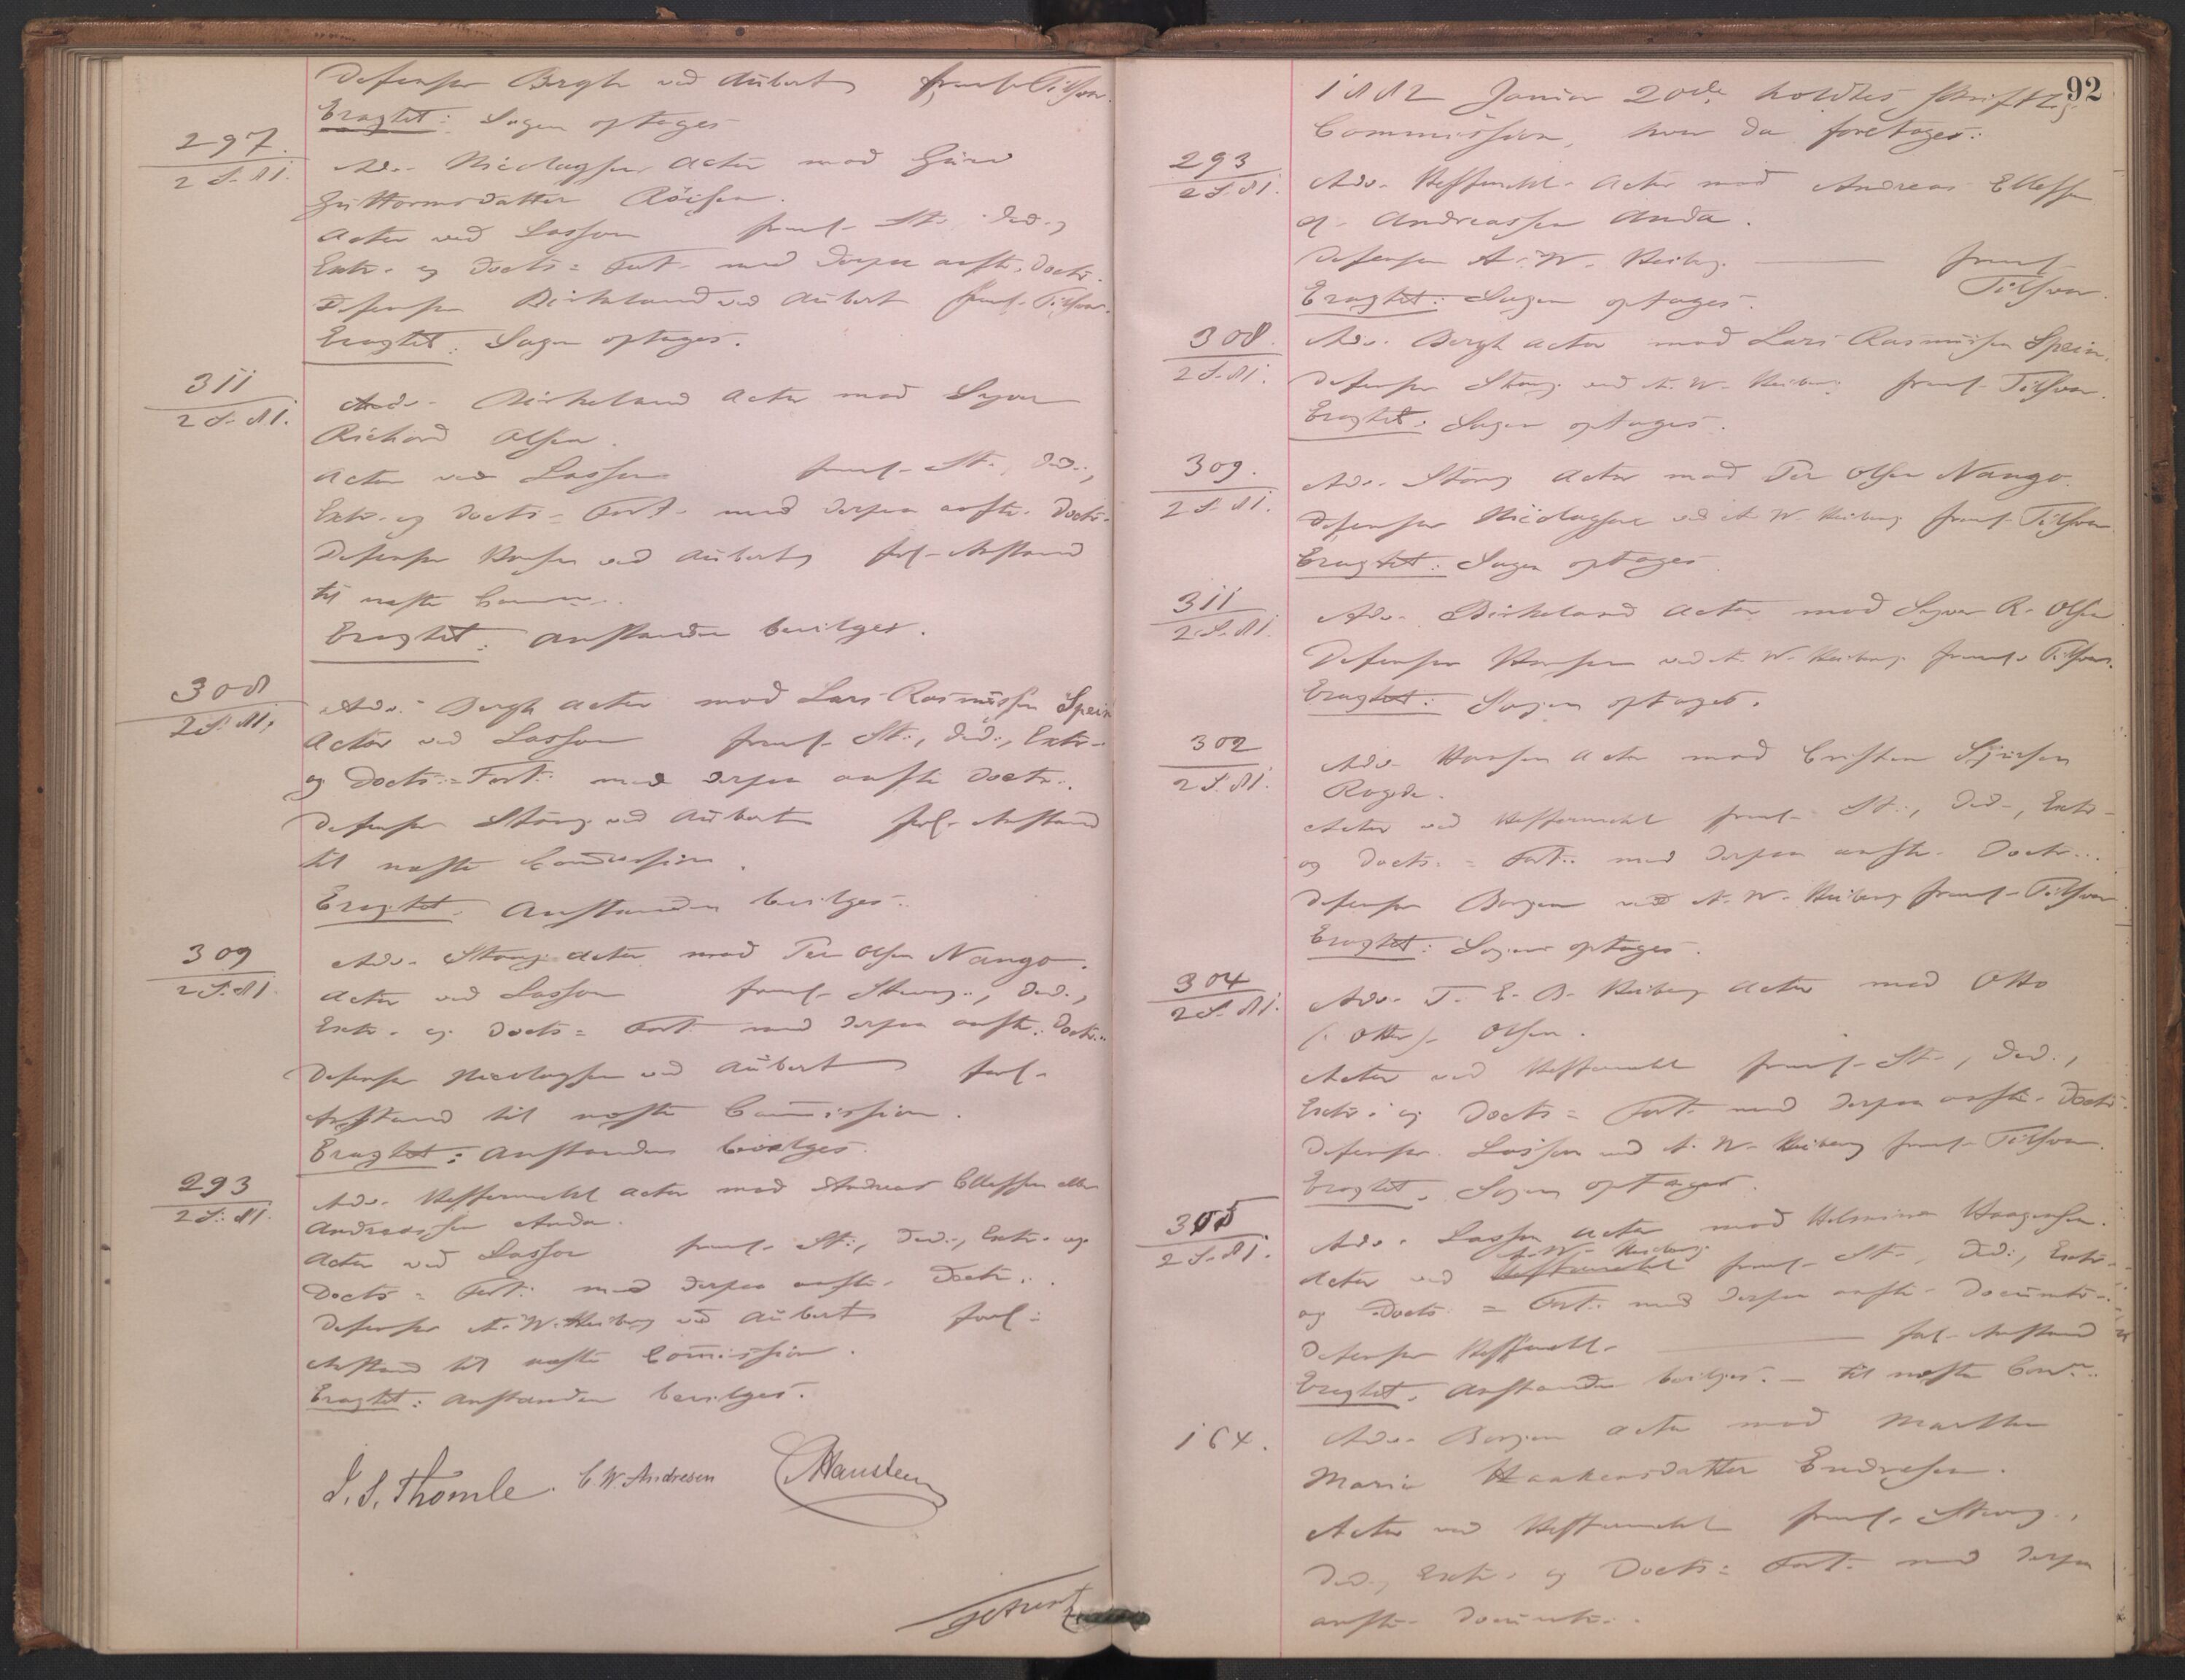 Defensor Bergh ved Aubert freml. Tilsvar.
Eragtet: Sagen optages
297.
2 S. 81.
Adv. Nicolaysen Actor mod Guro
Guttormsdatter Röisen.
Actor ved Lasson freml. St., Ded.,
Extr. og Docts = Fort. med derpaa anfte. Doctr.
Defensor Birkeland ved Aubert freml. Tilsvar.
Eragtet: Sagen optages.
311
2 S. 81.
Adv. Birkeland Actor mod Syver
Richard Olsen.
Actor ved Lasson freml. St., Ded.,
Extr. og Docts = Fort. med derpaa anfte. Doctr.
Defensor Hansen ved Aubert forl. Anstand
til næste Comm.
Eragtet: Anstanden bevilges.
308
2 S. 81.
Adv. Bergh Actor mod Lars Rasmussen Spein
Actor ved Lasson freml. St., Ded., Extr.
og Docts = Fort. med derpaa anfte Doctr.
Defensor Stang ved Aubert forl. Anstand
til næste Commission.
Eragtet: Anstanden bevilges.
309
2 S. 81.
Adv. Stang Actor mod Per Olsen Nango.
Actor ved Lasson freml. Stevng., Ded.,
Extr. og Docts = Fort. med derpaa anfte. Doctr.
Defensor Nicolaysen ved Aubert forl.
Anstand til næste Commission.
Eragtet: Anstanden bevilges.
293
2 S. 81.
Adv. Heffermehl Actor mod Andreas Ellefsen eller
Andreassen Anda.
Actor ved Lasson freml. St., Ded., Extr. og
Docts = Fort. med derpaa anfte. Doctr.
Defensor A. W. Heiberg ved Aubert forl.
Anstand til næste Commission.
Eragtet: Anstanden bevilges.
J. S. Thomle. C. W. Andresen CHansteen
92
1882 Januar 20de holdtes skriftlig
Commission, hvor da foretoges:
293
2 S. 81.
Adv. Heffermehl Actor mod Andreas Ellefsen
el. Andreassen Anda.
Defensor A. W. Heiberg — freml.
Tilsvar.
Eragtet: Sagen optages.
308.
2 S. 81.
Adv. Bergh Actor mod Lars Rasmussen Spein.
Defensor Stang ved A. W. Heiberg freml. Tilsvar.
Eragtet: Sagen optages.
309.
2 S. 81.
Adv. Stang Actor mod Per Olsen Nango.
Defensor Nicolaysen ved A. W. Heiberg freml. Tilsvar.
Eragtet: Sagen optages
311
2 S. 81.
Adv. Birkeland Actor mod Syver R. Olsen
Defensor Hansen ved A. W. Heiberg freml. Tilsvar.
Eragtet: Sagen optages.
302
2 S. 81.
Adv. Hansen Actor mod Cristen
Rogde.
Actor ved Heffermehl freml. St., Ded., Extr.
og Docts = Fort. med derpaa anfte. Doctr.
Defensor Borgen ved A. W. Heiberg freml. Tilsvar
Eragtet: Sagen optages.
304
2 S. 81.
Adv. T. E. B. Heiberg Actor mod Otto
(: Otter) Olsen.
Actor ved Heffermehl freml. St., Ded.,
Extr. og Docts = Fort. med derpaa anfte. Doctr.
Defensor Lasson ved A. W. Heiberg freml. Tilsvar.
Eragtet: Sagen optages.
305
2 S. 81.
Adv. Lasson Actor mod Helmine Haagensen.
A. W. Heiberg
Actor ved Heffermehl freml. St., Ded., Extr.
og Docts = Fort. med derpaa anfte. Documtr.
Defensor Heffermehl — forl. Anstand
Eragtet: Anstanden bevilges. — til næste Comn.
164.
Adv. Borgen Actor mod Marthe
Marie Haakensdatter Endresen.
Actor ved Heffermehl freml. Stevng.,
Ded., Extr. og Docts = Fort. med derpaa
anfte. Documtr.